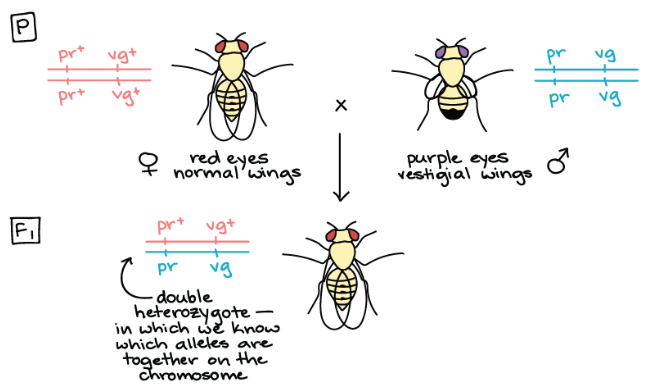 P
pr⁺ vg⁺
pr⁺ vg⁺
pr vg
pr vg
x
♀ red eyes
normal wings
purple eyes
vestigial wings ♂
F₁
pr⁺ vg⁺
pr vg
double
heterozygote —
in which we know
which alleles are
together on the
chromosome